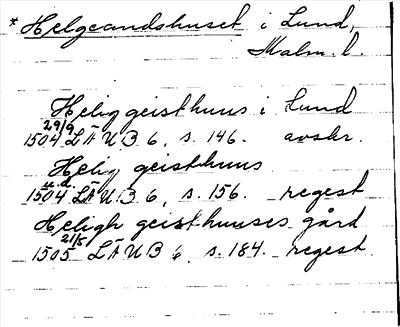 * Helgeandshuset i Lund,
Malm. l.
Helig geisthuus i Lund
1504 29/9 LÄUB 6, s. 146. avskr.
Helig geisthuus
1504 u.d. LÄUB 6, s. 156. regest
Heligh geisthuuses gård
1505 21/5 LÄUB 6, s. 184. regest.